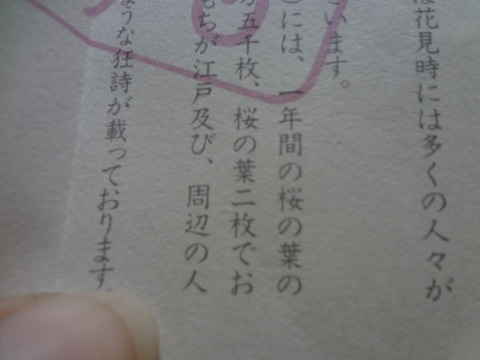 は花見時には多くの人々が
います。
には、一年間の桜の葉の
五千枚、桜の葉二枚でお
もちが江戸及び、周辺の人
ような狂詩が載っております。